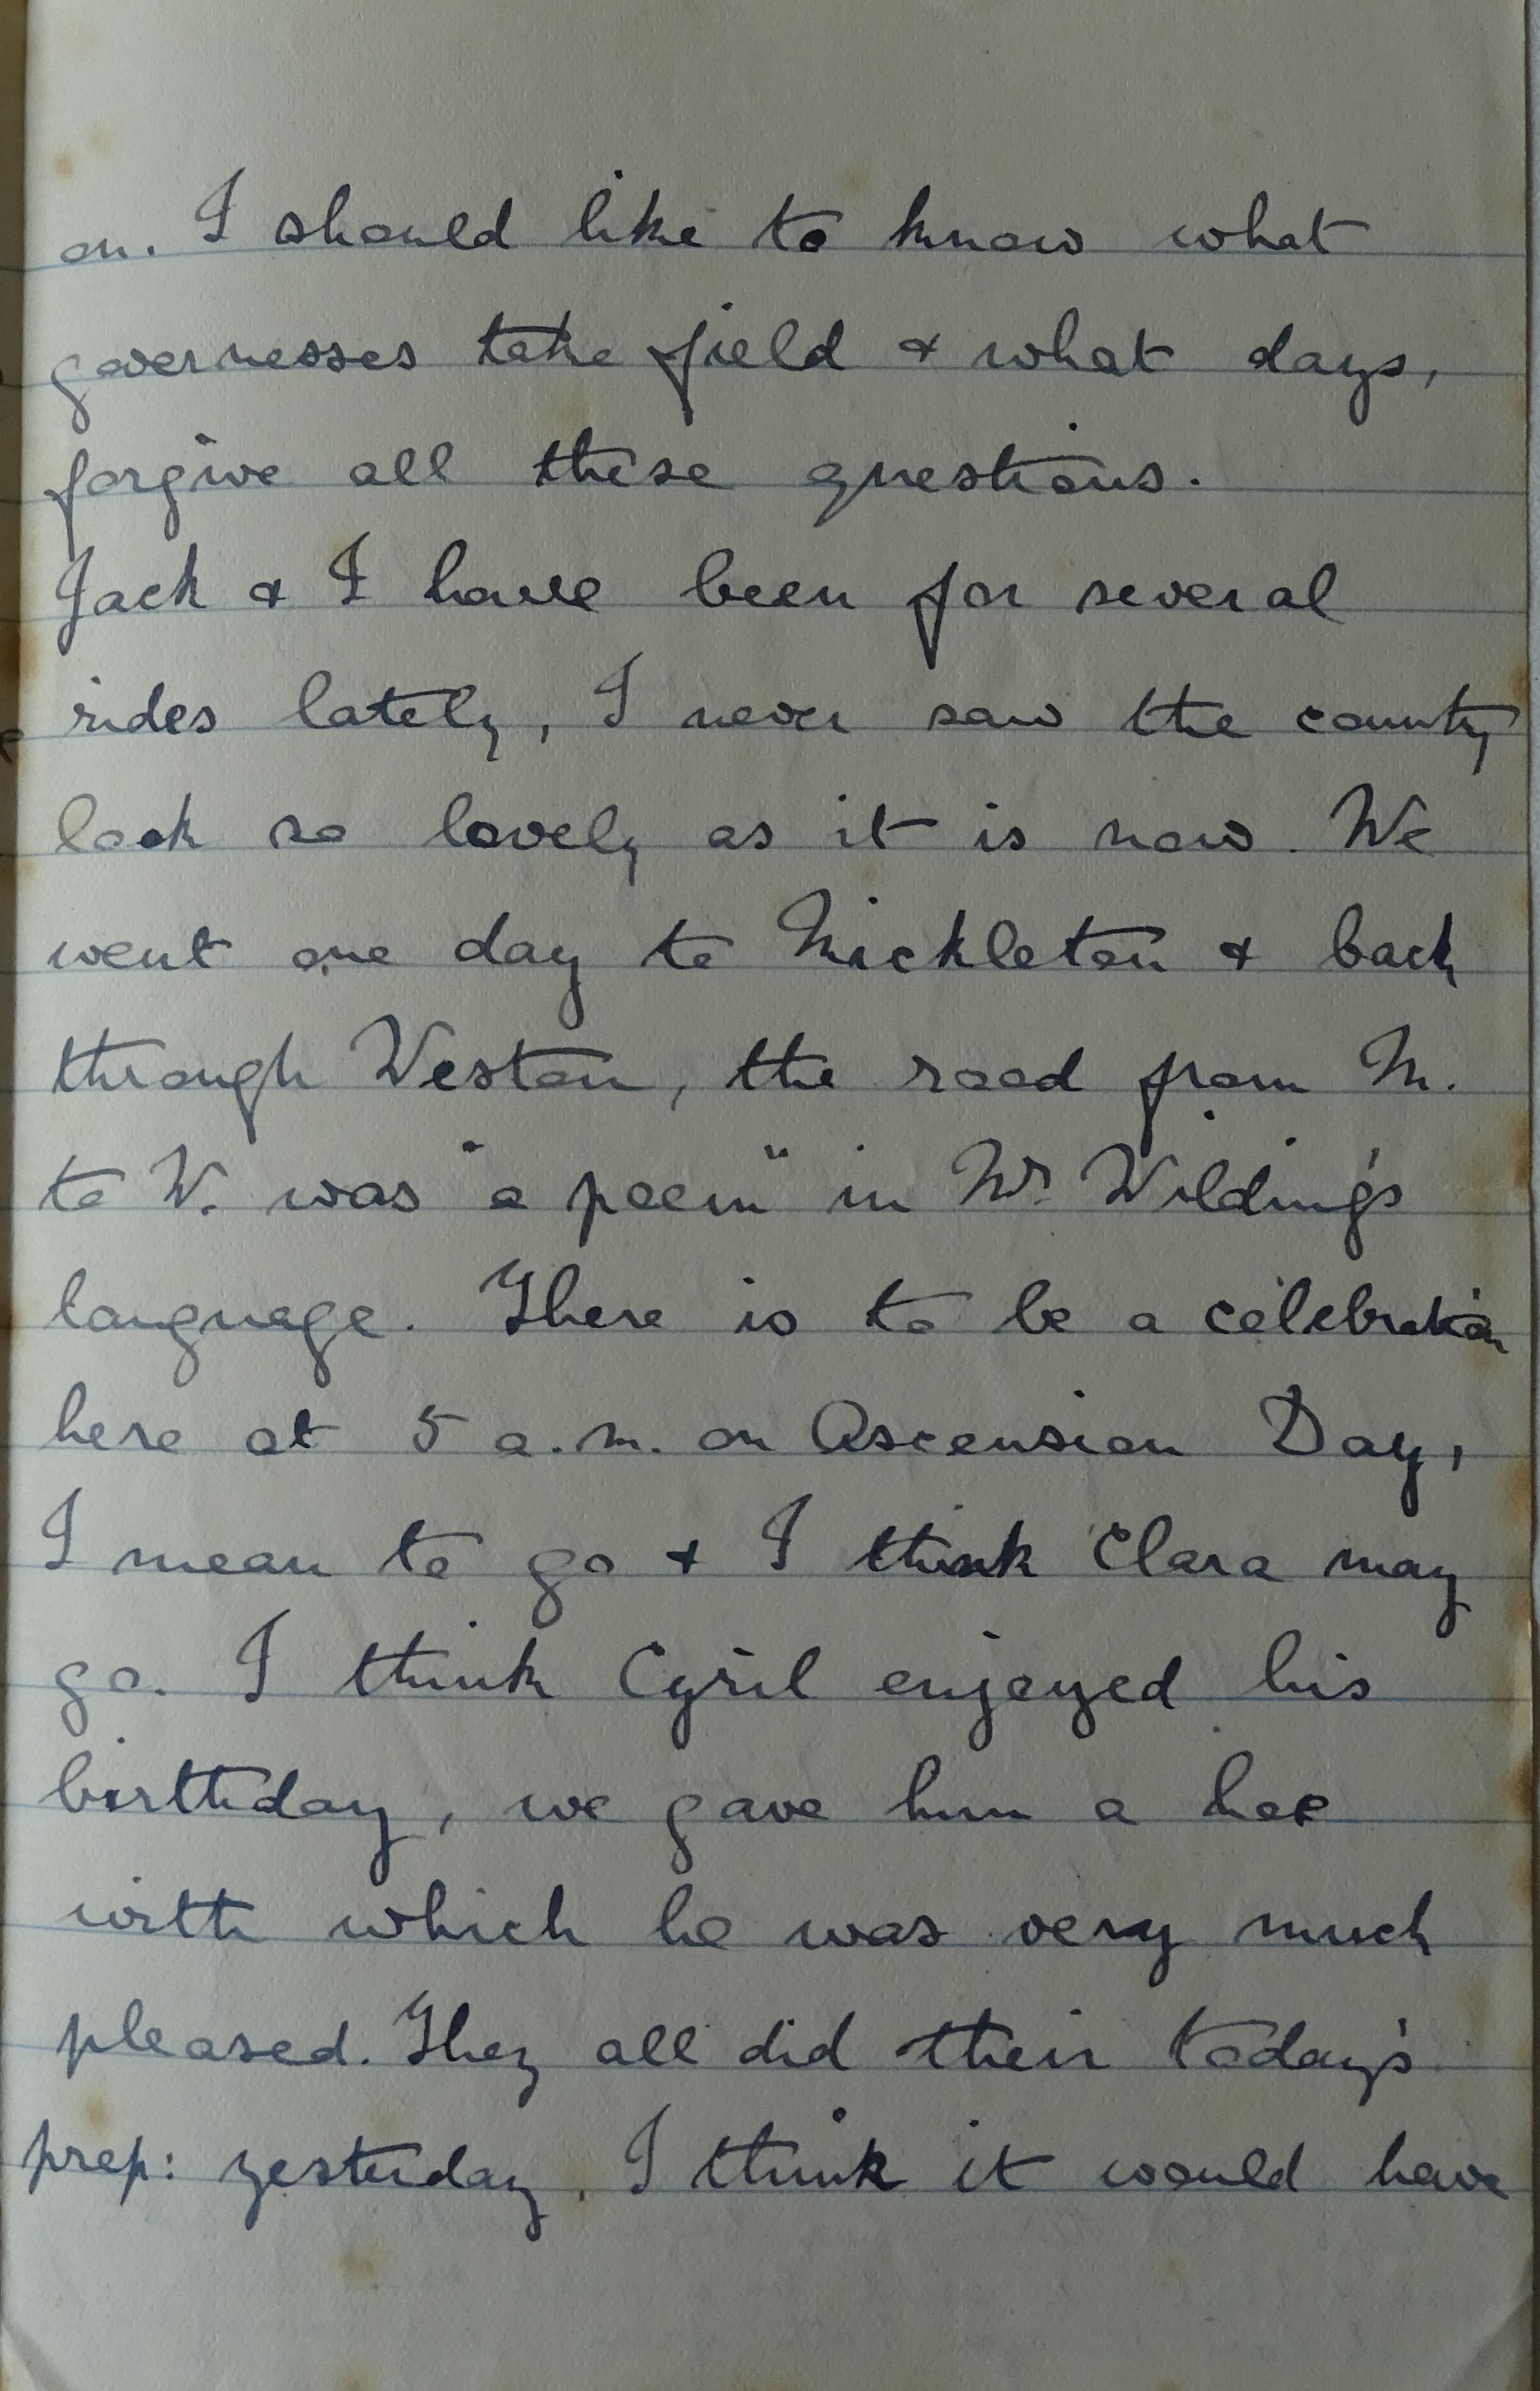 on. I should like to know what
governesses take field & what days,
forgive all these questions.
Jack & I have been for several
rides lately, I never saw the county
look so lovely as it is now. We
went one day to Mickleton & back
through Weston, the road from M.
to W. was "a poem" in Mr. Wilding's
language. There is to be a celebration
here at 5 a.m. on Ascension Day,
I mean to go & I think Clara may
go. I think Cyril enjoyed his
birthday, we gave him a hoe
with which he was very much
pleased. They all did their today's
prep: yesterday, I think it would have